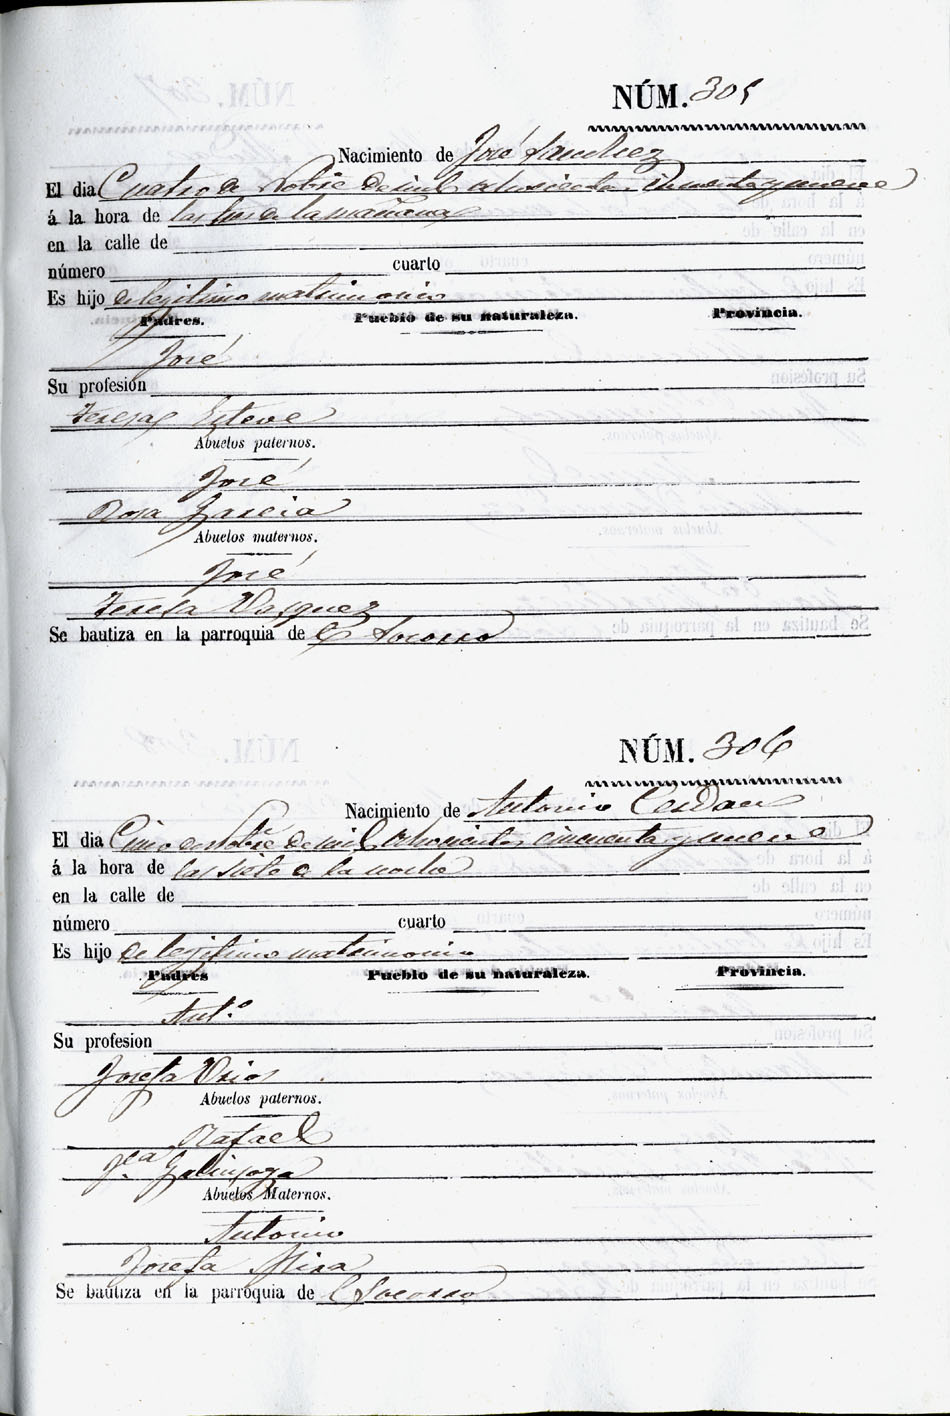 NÚM. 305
Nacimiento de José Sanchez
El dia Cuatro de Nobre de mil ochocientos cincuenta y nueve
á la hora de las dos de la mañana
en la calle de
número cuarto
Es hijo de legitimo matrimonio
Padres. Pueblo de su naturaleza. Provincia.
José
Su profesion
Teresa Esteve
Abuelos paternos.
José
Rosa Garcia
Abuelos maternos.
José
Teresa Vasquez
Se bautiza en la parroquia de El Socorro
NÚM. 306
Nacimiento de Antonio Cerdan
El dia Cinco de Nobre de mil ochocientos cincuenta y nueve
á la hora de las siete de la noche
en la calle de
número cuarto
Es hijo de legitimo matrimonio
Padres Pueblo de su naturaleza. Provincia.
Ant.º
Su profesion
Josefa Urios
Abuelos paternos.
Rafael
J.ca Galinsoga
Abuelos Maternos.
Antonio
Josefa Mira
Se bautiza en la parroquia de El Socorro